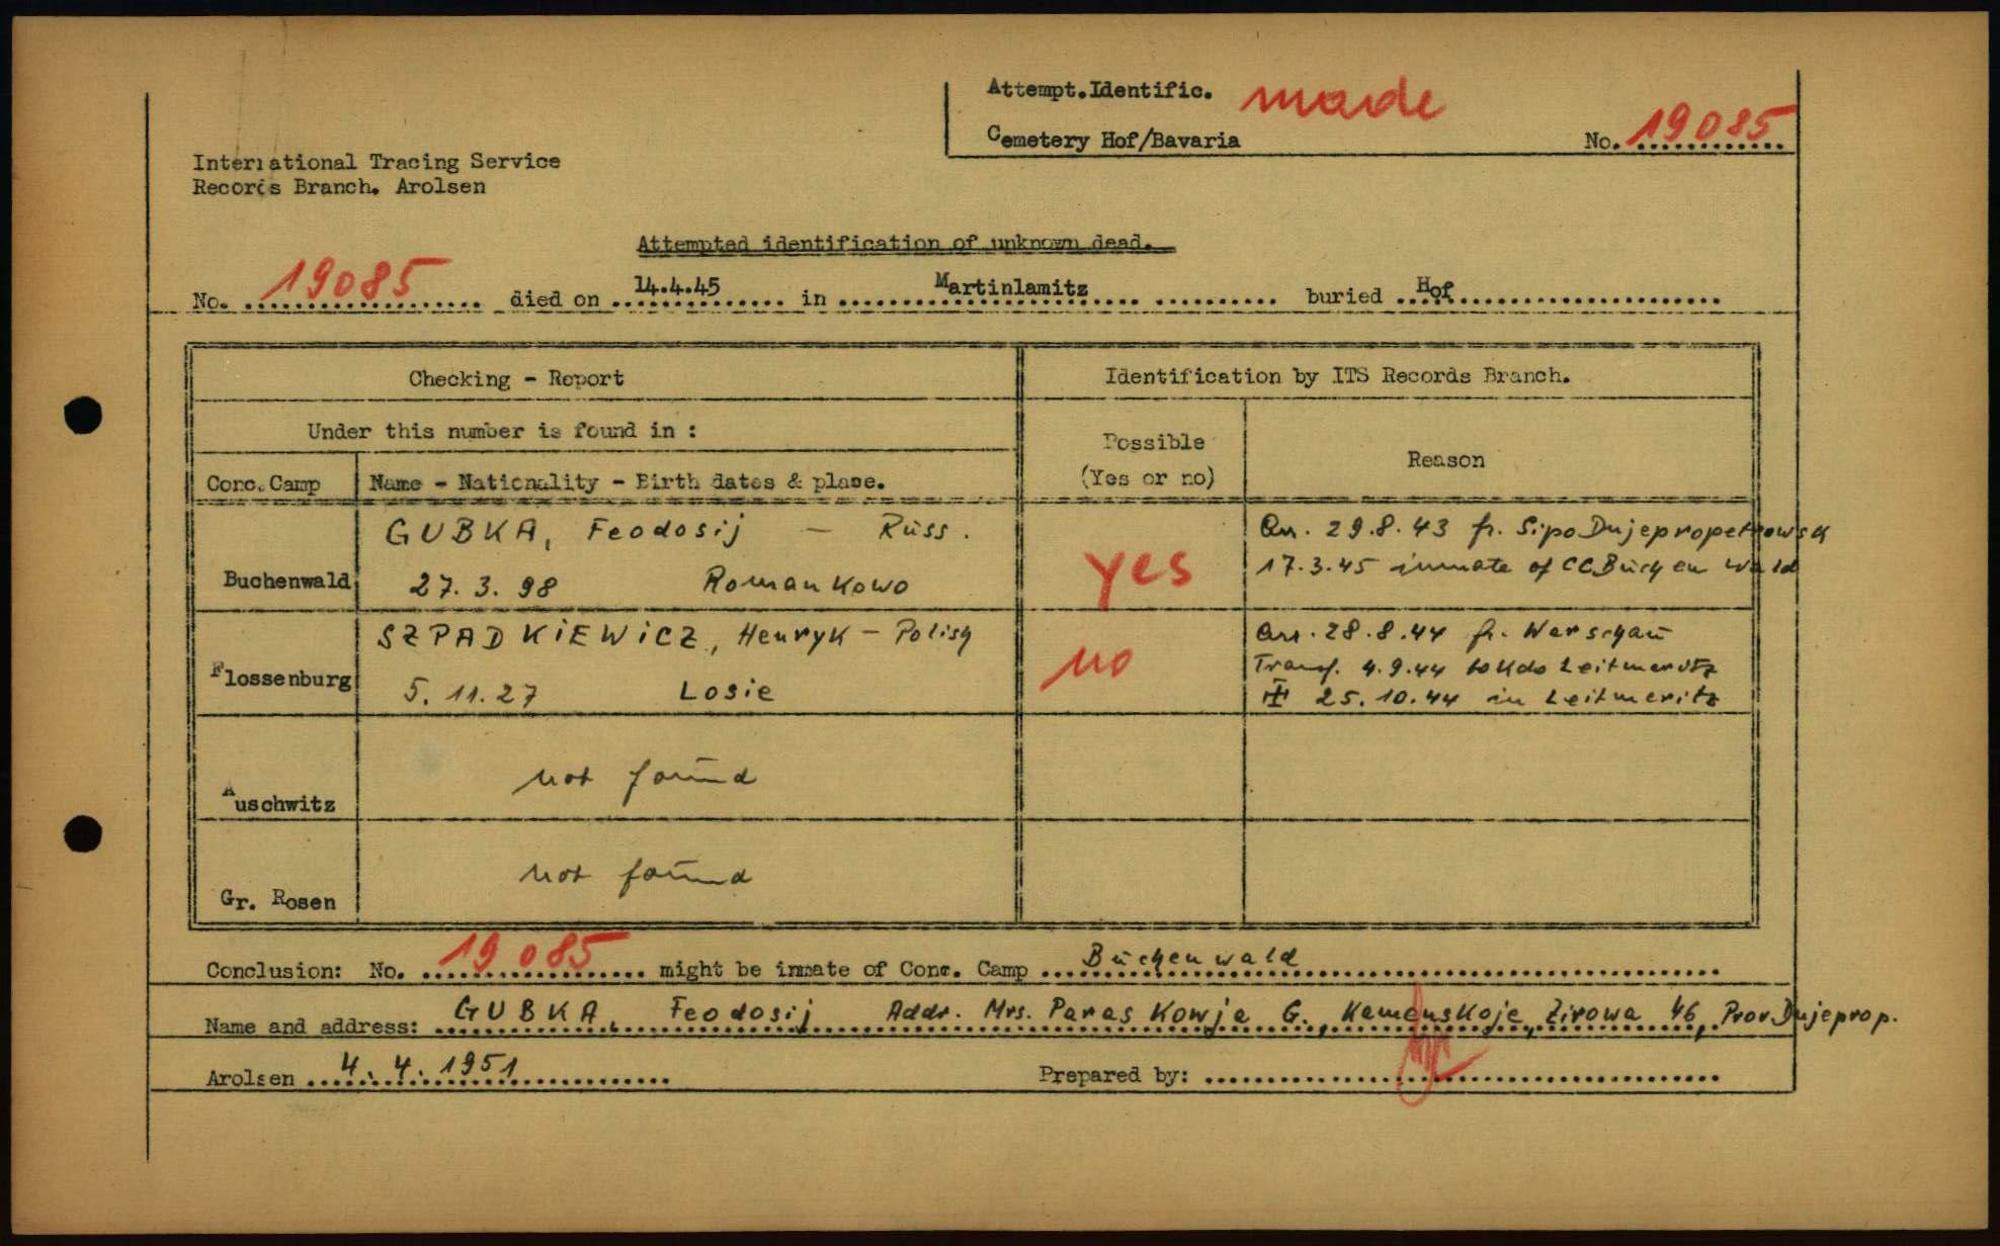 Attempt.Identific. made
Cemetery Hof/Bavaria No. 19085
International Tracing Service
Records Branch. Arolsen
Attempted identification of unknown dead.
No. 19085 died on 14.4.45 in Martinlamitz buried Hof
Checking - Report Identification by ITS Records Branch.
Under this number is found in :
Possible
(Yes or no)
Reason
Conc.Camp Name - Nationality - Birth dates & place.
GUBKA, Feodosij — Russ.
Buchenwald 27.3.98 Romankowo
yes
Arr. 29.8.43 fr. Sipo Dnjepropetrowsk
17.3.45 inmate of CC Buchenwald
SZPADKIEWICZ, Henryk - Polish
Flossenburg 5.11.27 Losie
no
Arr. 28.8.44 fr. Warschau
Transf. 4.9.44 to Kdo Leitmeritz
25.10.44 in Leitmeritz
Auschwitz not found
Gr. Rosen not found
Conclusion: No. 19085 might be inmate of Conc. Camp Buchenwald
Name and address: GUBKA, Feodosij Addr. Mrs. Paraskowja G., Kamenskoje, Zirowa 46, Prov. Dnjeprop.
Arolsen 4.4.1951 Prepared by: